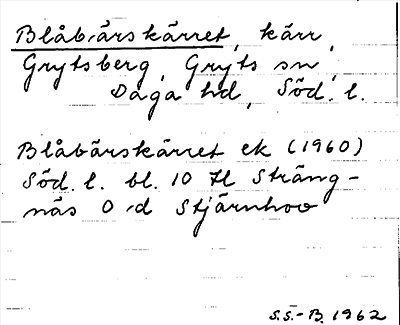 Blåbärskärret, kärr,
Grytsberg, Gryts sn,
Daga hd, Söd. l.
Blåbärskärret ek (1960)
Söd. l. bl. 10 Hl Sträng-
näs O d Stjärnhov
S.S.-B. 1962